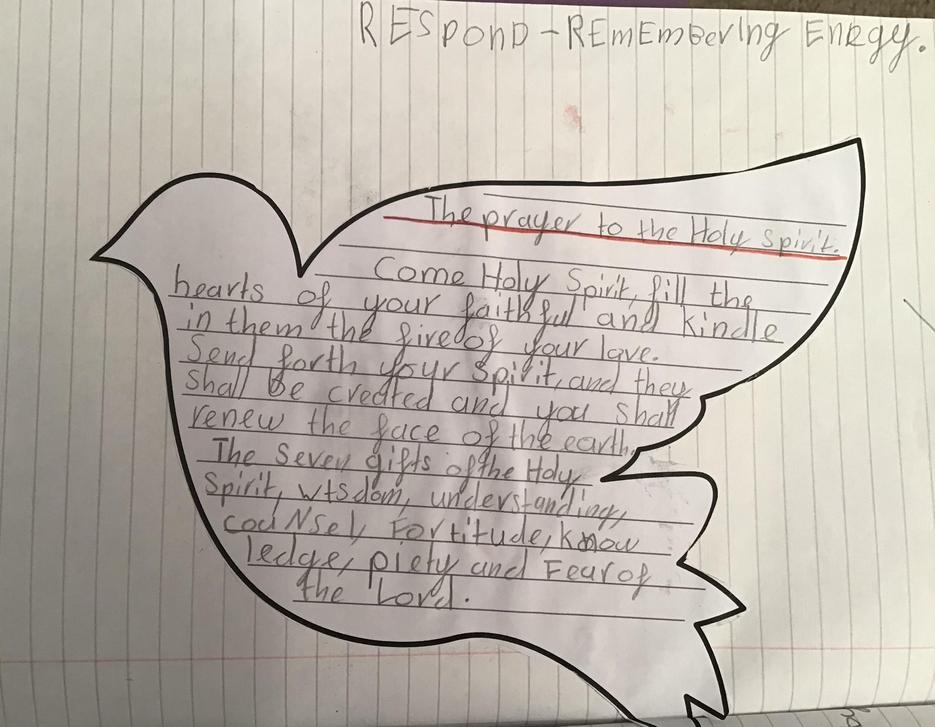 RESpOnD - REmEmbering Enrgy.
The prayer to the Holy Spirit.
Come Holy Spirit, fill the
hearts of your faithful and kindle
in them the fire of your love.
Send forth your Spirit, and they
shall be created and you shall
renew the face of the earth.
The Seven gifts of the Holy
Spirit, wisdom, understanding,
couNsel, Fortitude, know
ledge, piety and Fear of
the Lord.